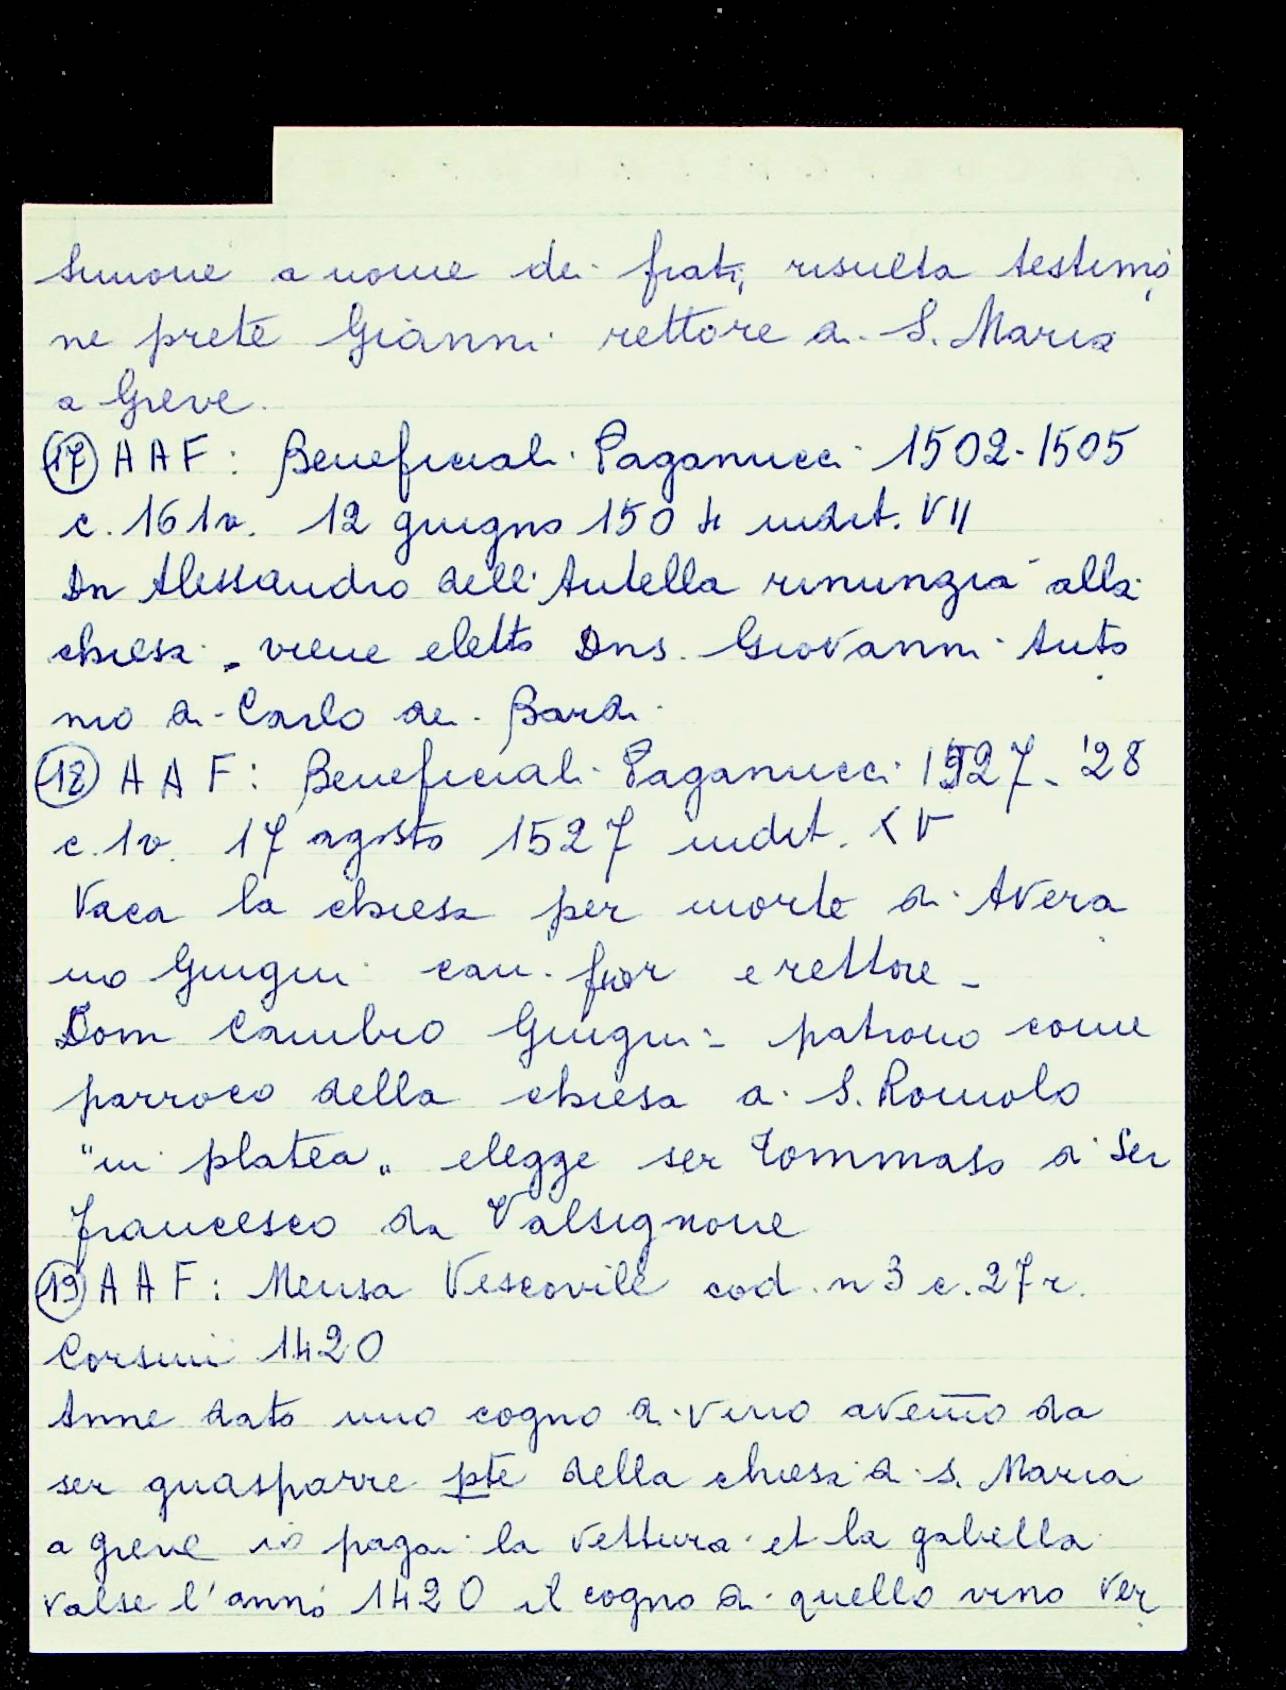 Simone a nome dei frati, risulta testimo
ne prete Gianni rettore di S. Maria
a Greve.
(17) AAF: Beneficiali Paganucci 1502-1505
c. 161v. 12 giugno 1504 indit. VII
Dn Alessandro dell'Antella rinunzia alla
chiesa, viene eletto Dns. Giovanni Anto
nio di Carlo dei Bardi
(18) AAF: Beneficiali Paganucci 1527-'28
c. 1v. 17 agosto 1527 indit. XV
Vaca la chiesa per morte di Avera
no Giugni can. fior e rettore -
Dom Cambio Giugni - patrono come
parroco della chiesa di S. Romolo
"in platea" elegge ser Tommaso di Ser
Francesco da Valsignone
(19) AAF: Mensa Vescovile cod. n 3 c. 27r.
Corsini 1420
Anne dato uno cogno di vino avemo da
ser guasparre pte della chiesa di s. Maria
a greve io pagai la vettura et la gabella
valse l'anno 1420 il cogno di quello vino ver